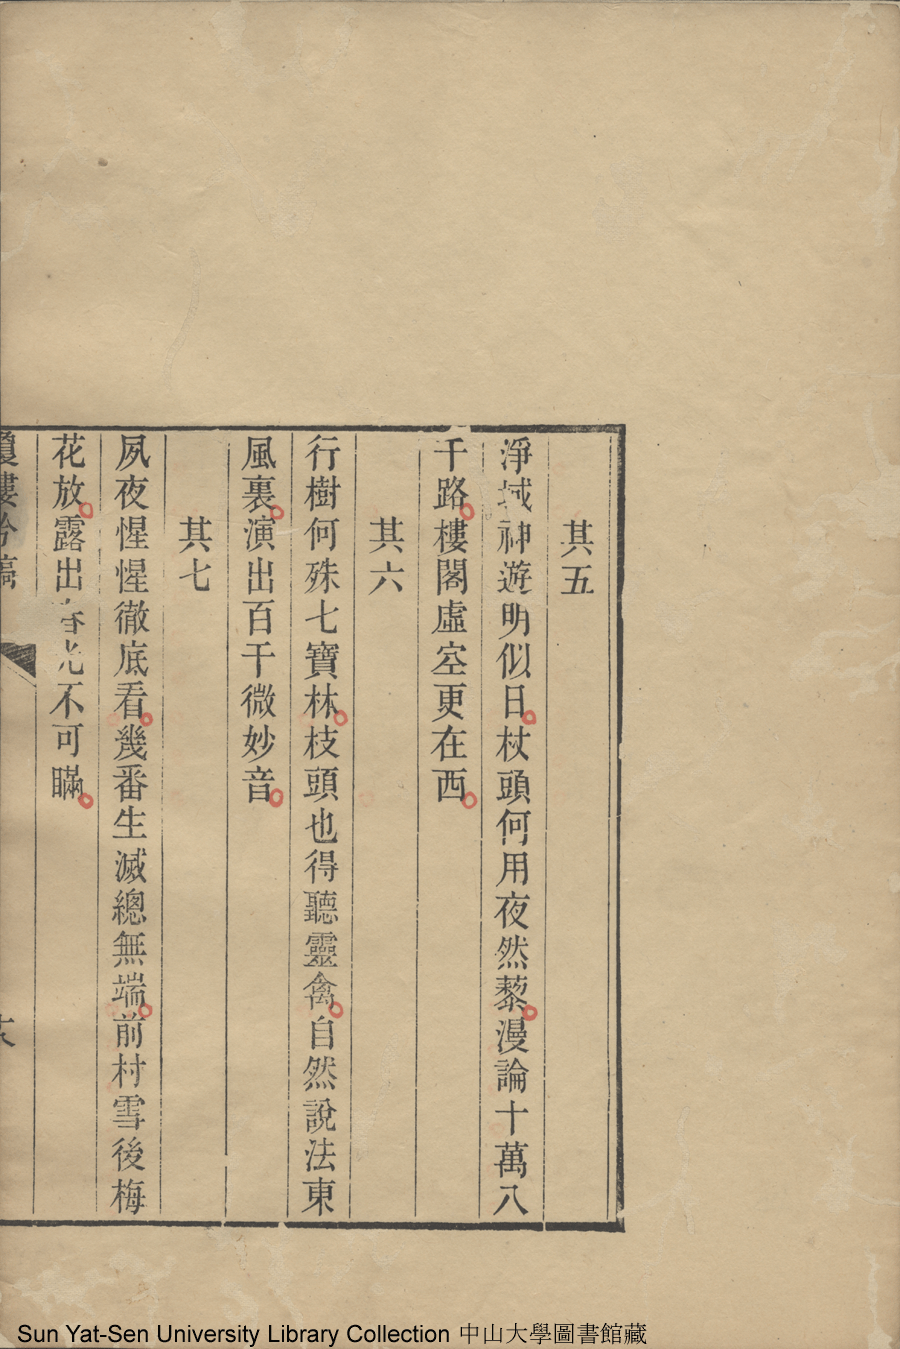 其五
淨域神遊明似日杖頭何用夜然藜漫論十萬八
千路樓閣虛空更在西
其六
行樹何殊七寶林枝頭也得聽靈禽自然說法東
風裏演出百千微妙音
其七
夙夜惺惺徹底看幾番生滅總無端前村雪後梅
花放露出春光不可瞞
瓊樓吟稿
Sun Yat-Sen University Library Collection 中山大學圖書館藏